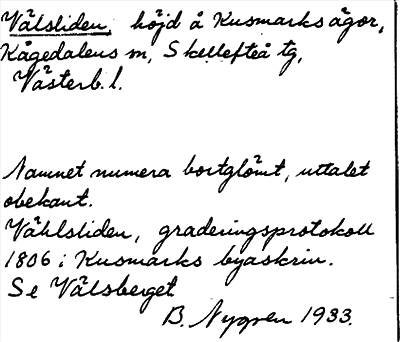 Vålsliden, höjd å Kusmarks ägor,
Kågedalens sn, Skellefteå tg,
Västerb. l.
Namnet numera bortglömt, uttalet
obekant.
Våhlsliden, graderingsprotokoll
1806 i Kusmarks byaskrin.
Se Vålsberget
B. Nygren 1933.